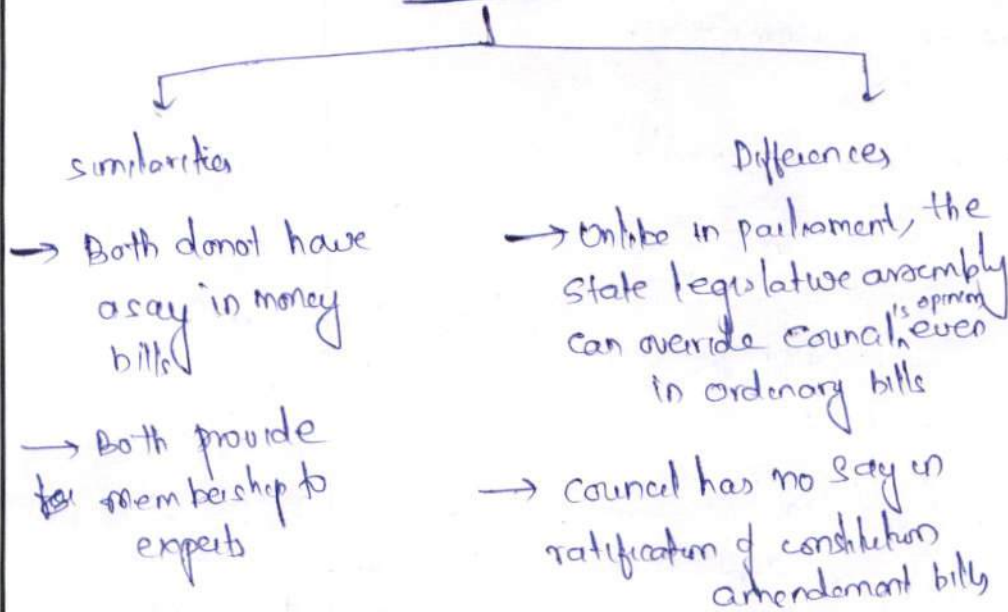 Similarities
→ Both donot have
a say in money
bills
→ Both provide
membership to
experts
Differences
→ Unlike in parliament, the
state legislature assembly
can override council's opinion even
in ordenary bills
→ council has no say in
ratification of constitution
amendament bills